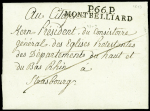 P.66.P.
MONTBELLIARD
Au Citoyen
Kern, Président du Consistoire
général des Eglises Protestantes
des Départements du haut et
du Bas Rhin à
Strasbourg